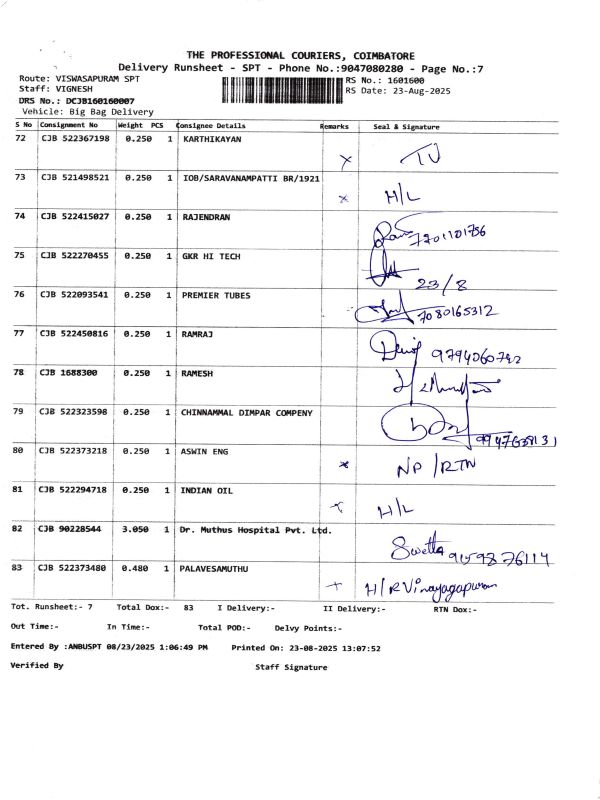 THE PROFESSIONAL COURIERS, COIMBATORE
Delivery Runsheet - SPT - Phone No.:9047080280 - Page No.:7
Route: VISWASAPURAM SPT
RS No.: 1601600
Staff: VIGNESH
RS Date: 23-Aug-2025
DRS No.: DCJB160160007
Vehicle: Big Bag Delivery
S No Consignment No Weight PCS Consignee Details Remarks Seal & Signature
72 CJB 522367198 0.250 1 KARTHIKAYAN x
73 CJB 521498521 0.250 1 IOB/SARAVANAMPATTI BR/1921 x H/L
74 CJB 522415027 0.250 1 RAJENDRAN
75 CJB 522270455 0.250 1 GKR HI TECH 23/8
76 CJB 522093541 0.250 1 PREMIER TUBES 7080165312
77 CJB 522450816 0.250 1 RAMRAJ
78 CJB 1688300 0.250 1 RAMESH
79 CJB 522323598 0.250 1 CHINNAMMAL DIMPAR COMPENY
80 CJB 522373218 0.250 1 ASWIN ENG x NP/RTN
81 CJB 522294718 0.250 1 INDIAN OIL x H/L
82 CJB 90228544 3.050 1 Dr. Muthus Hospital Pvt. Ltd. Swetta 9159876114
83 CJB 522373480 0.480 1 PALAVESAMUTHU x H/R Vinayagapuram
Tot. Runsheet:- 7 Total Dox:- 83 I Delivery:- II Delivery:- RTN Dox:-
Out Time:- In Time:- Total POD:- Delvy Points:-
Entered By :ANBUSPT 08/23/2025 1:06:49 PM Printed On: 23-08-2025 13:07:52
Verified By Staff Signature